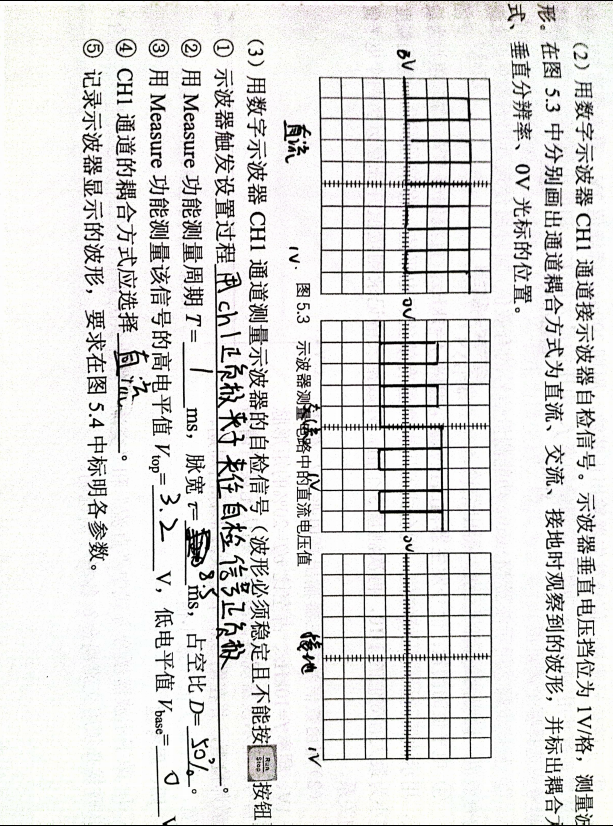 （2）用数字示波器 CH1 通道接示波器自检信号。示波器垂直电压挡位为 1V/格，测量波
形。在图 5.3 中分别画出通道耦合方式为直流、交流、接地时观察到的波形，并标出耦合方
式、垂直分辨率、0V 光标的位置。
0V 0V
直流 1V 1V 接地 1V
图 5.3 示波器测量电路中的直流电压值
（3）用数字示波器 CH1 通道测量示波器的自检信号（波形必须稳定且不能按 Run Stop 按钮
① 示波器触发设置过程 用ch1正负极夹子夹住自检信号正负极。
② 用 Measure 功能测量周期 T= 1 ms，脉宽 τ= ms，占空比 D= 50%。
③ 用 Measure 功能测量该信号的高电平值 Vtop= 3.2 V，低电平值 Vbase= 0 V
④ CH1 通道的耦合方式应选择 直流。
⑤ 记录示波器显示的波形，要求在图 5.4 中标明各参数。